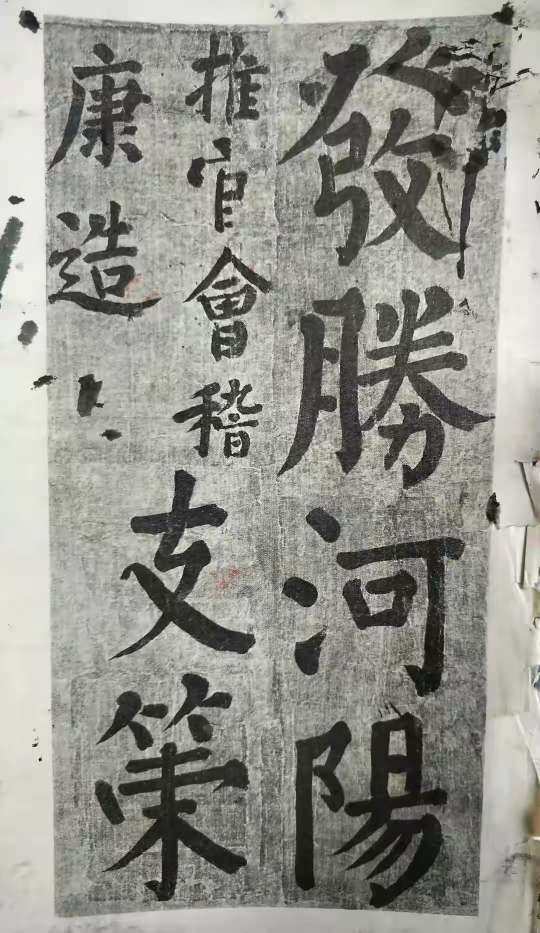 發勝河陽
推官會稽支策
康造